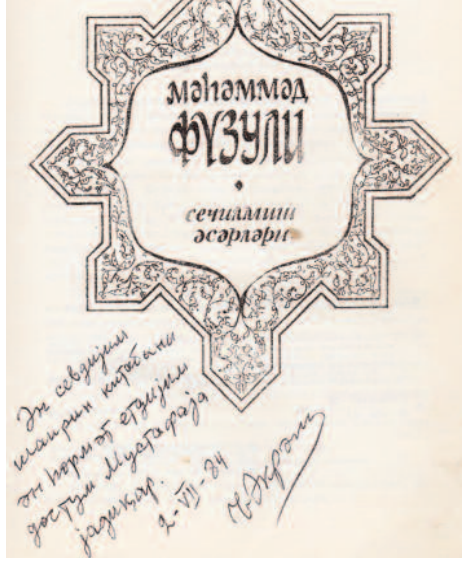 мәһәммәд
ФҮЗУЛИ
•
сечилмиш
әсәрләри
Ән севдијим
шаирин китабыны
ән һөрмәт етдијим
достум Мустафаја
јадикар.
2-VII-84